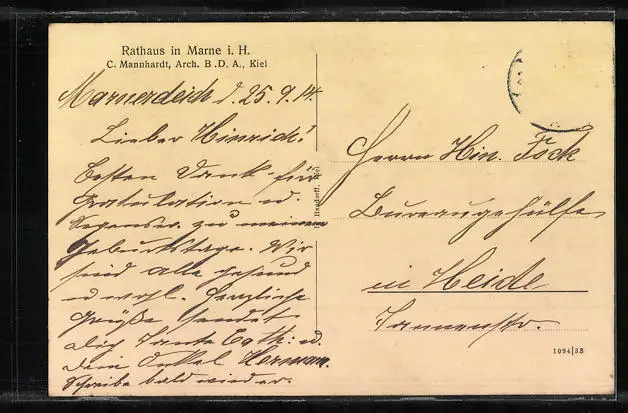 Rathaus in Marne i. H.
C. Mannhardt, Arch. B .D. A., Kiel
Marnerdeich d. 25.9.14.
Lieber Hinrich!
Besten Dank für
Gratulation u.
zu meinem
Geburtstage. Wir
sind alle gesund
u wohl. Herzliche
Grüße sendet
Tante Cath: u.
Dein Onkel Herman.
Schreibe bald wieder.
Herrn Hin. Fock
Bureaugehülfe
in Heide
Tannenstr.
1094|33